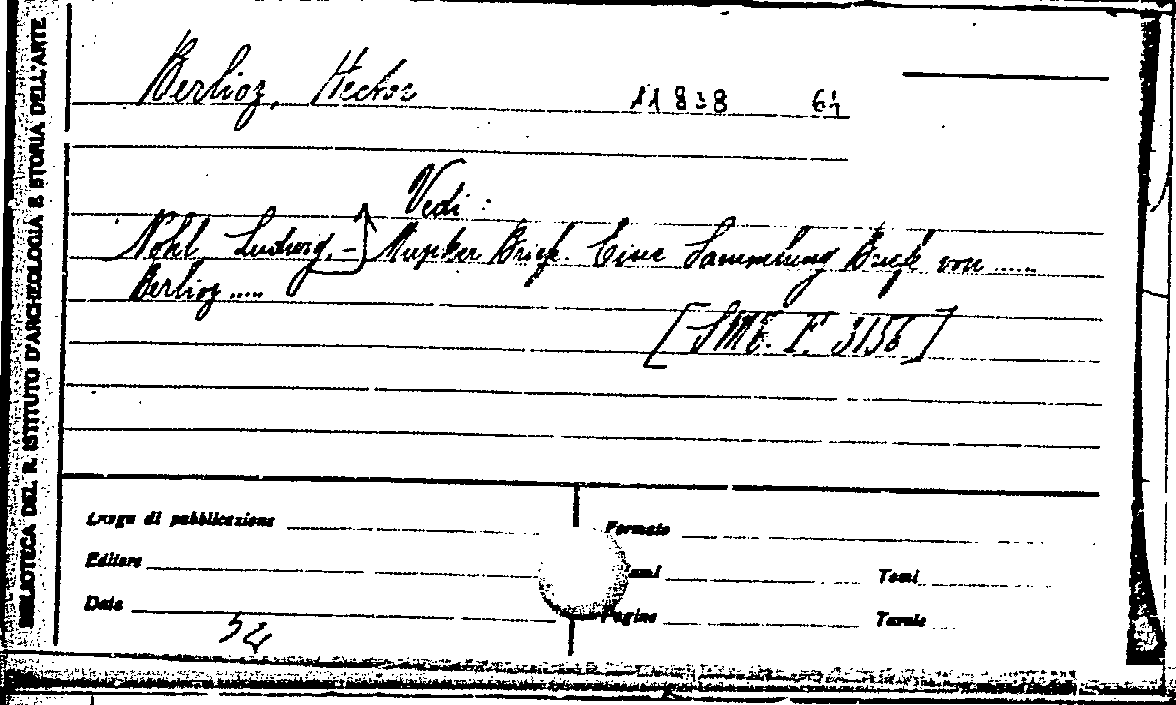 BIBLIOTECA DEL R. ISTITUTO D'ARCHEOLOGIA E STORIA DELL'ARTE
Berlioz, Hector 11838 61
Vedi:
Nohl Ludwig, - Musiker Brief. Eine Sammlung Brief von .....
Berlioz .....
[SME. F. 3156]
Luogo di pubblicazione
Formato
Editore
Tomi
Data
Pagine
Tavole
54